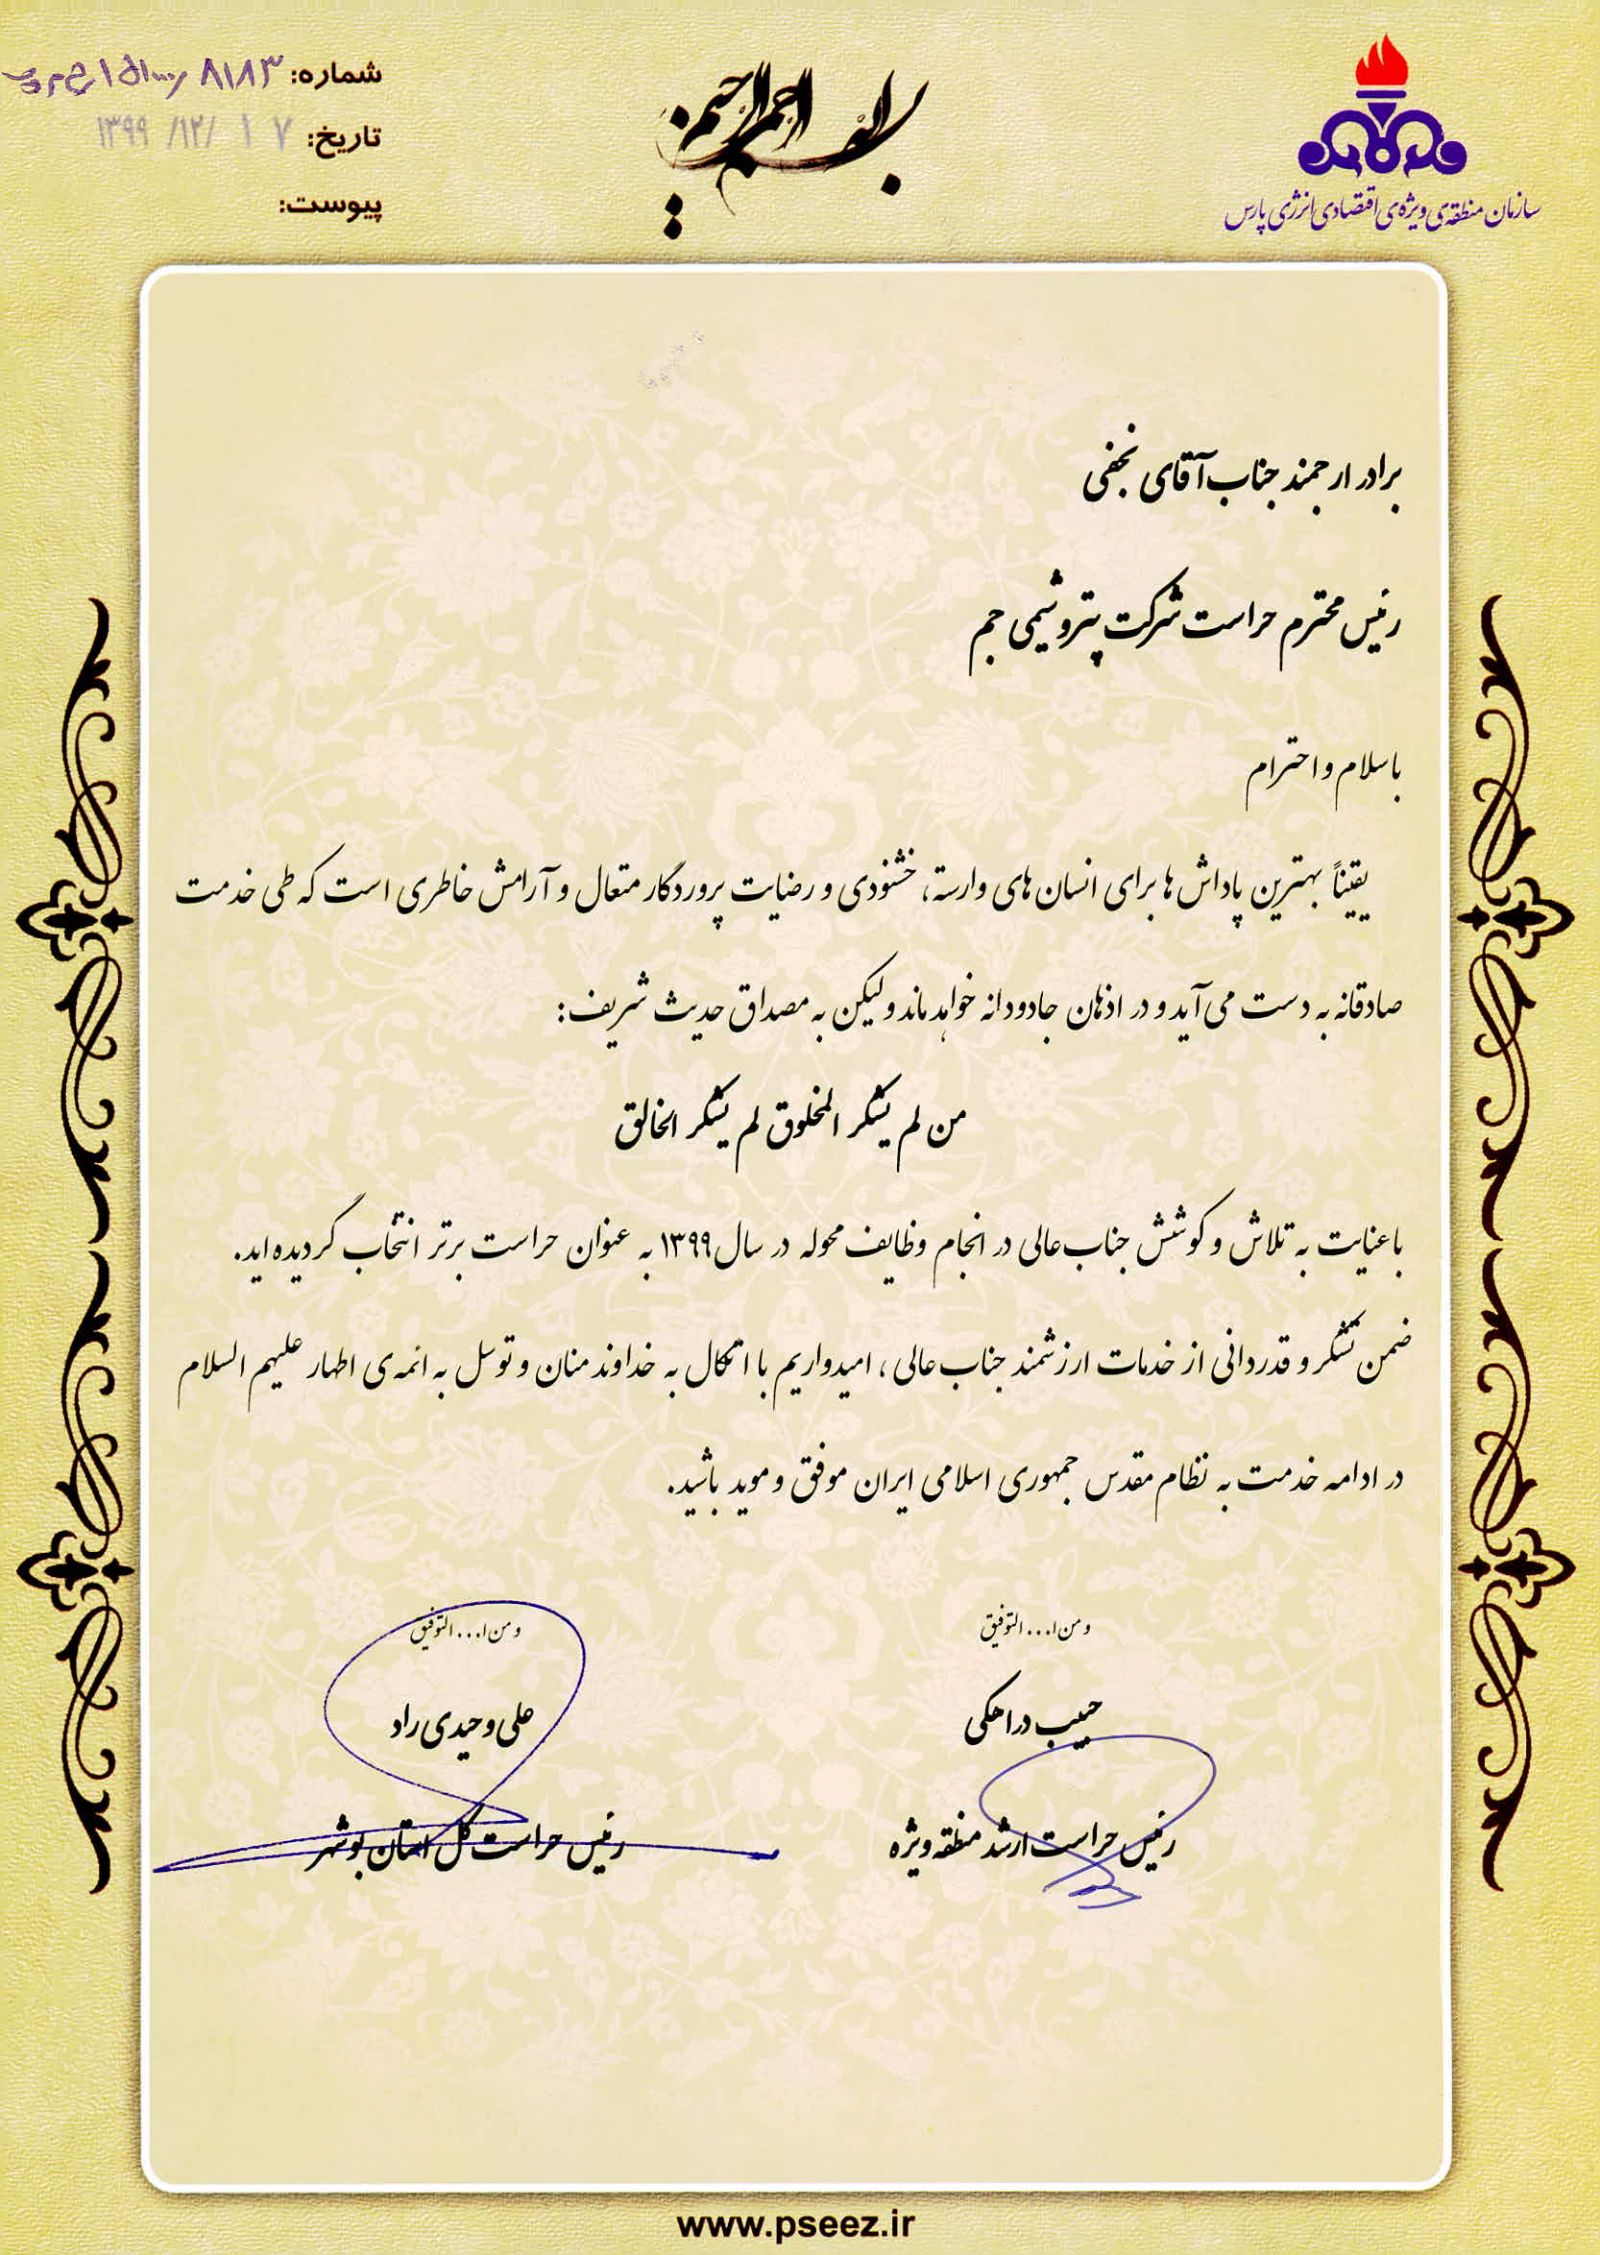 بسم الله الرحمن الرحیم
سازمان منطقه‌ی ویژه‌ی اقتصادی انرژی پارس
شماره: ۸۱۸۳
تاریخ: ۱۳۹۹/۱۲/۱۷
پیوست:
برادر ارجمند جناب آقای نجفی
رئیس محترم حراست شرکت پتروشیمی جم
با سلام و احترام
یقیناً بهترین پاداش ها برای انسان های وارسته، خشنودی و رضایت پروردگار متعال و آرامش خاطری است که طی خدمت
صادقانه به دست می آید و در اذهان جادودانه خواهد ماند ولیکن به مصداق حدیث شریف:
من لم یشکر المخلوق لم یشکر الخالق
با عنایت به تلاش و کوشش جناب عالی در انجام وظایف محوله در سال ۱۳۹۹ به عنوان حراست برتر انتخاب گردیده اید.
ضمن تشکر و قدردانی از خدمات ارزشمند جناب عالی، امیدواریم با اتکال به خداوند منان و توسل به ائمه ی اطهار علیهم السلام
در ادامه خدمت به نظام مقدس جمهوری اسلامی ایران موفق و موید باشید.
و من ا... التوفیق
حبیب دراهکی
رئیس حراست ارشد منطقه ویژه
و من ا... التوفیق
علی وحیدی راد
رئیس حراست کل استان بوشهر
www.pseez.ir